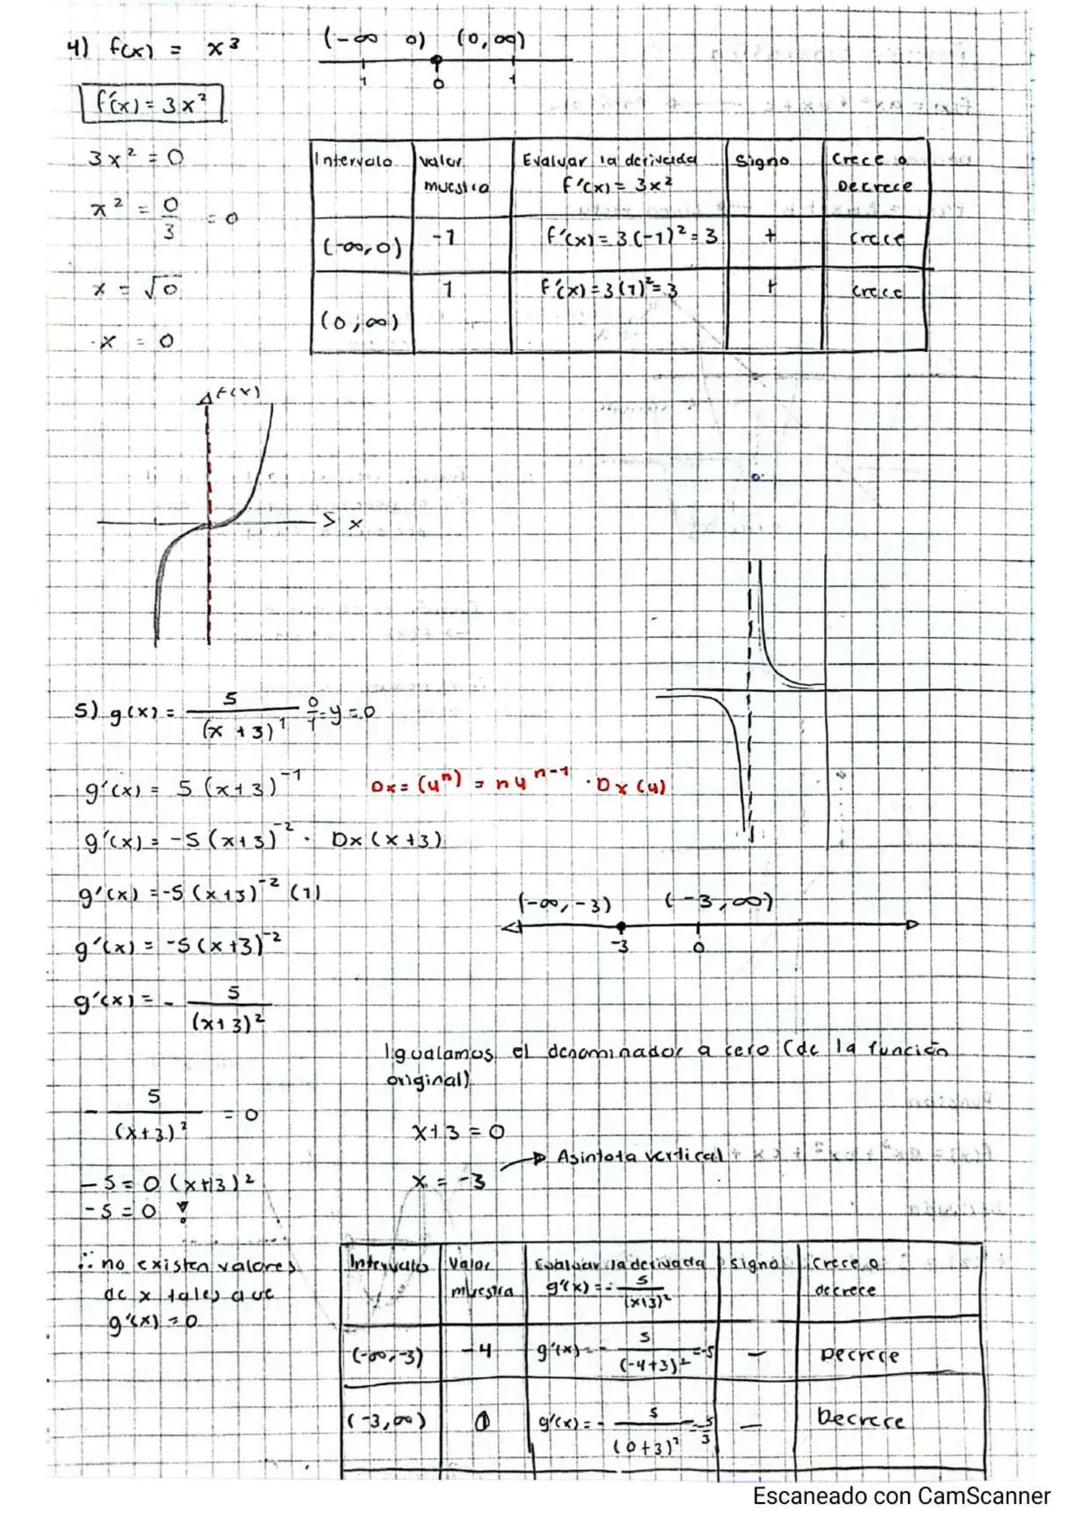 4) f(x) = x³
(-∞ 0) (0, ∞)
1 0 1
f'(x) = 3x²
3x² = 0
x² = 0/3 = 0
x = √0
x = 0
Intervalo | Valor muestra | Evaluar la derivada f'(x) = 3x² | Signo | Crece o Decrece
(-∞, 0) | -1 | f'(x) = 3(-1)² = 3 | + | Crece
(0, ∞) | 1 | f'(x) = 3(1)² = 3 | + | Crece
f(x)
x
5) g(x) = 5/(x + 3)¹ 0/1 = y = 0
g'(x) = 5(x+3)⁻¹ Dx = (uⁿ) = nuⁿ⁻¹ · Dx(u)
g'(x) = -5(x+3)⁻² · Dx(x+3)
g'(x) = -5(x+3)⁻² (1)
g'(x) = -5(x+3)⁻²
g'(x) = - 5/(x+3)²
(-∞, -3) (-3, ∞)
-3 0
Igualamos el denominador a cero (de la función
original)
x+3 = 0
x = -3 → Asintota vertical
- 5/(x+3)² = 0
-5 = 0 (x+3)²
-5 = 0 !
∴ no existen valores
de x tales que
g'(x) = 0
Intervalo | Valor muestra | Evaluar la derivada g'(x) = - 5/(x+3)² | signo | Crece o decrece
(-∞, -3) | -4 | g'(x) = - 5/(-4+3)² = -5 | - | Decrece
(-3, ∞) | 0 | g'(x) = - 5/(0+3)² = -5/3 | - | Decrece
Escaneado con CamScanner